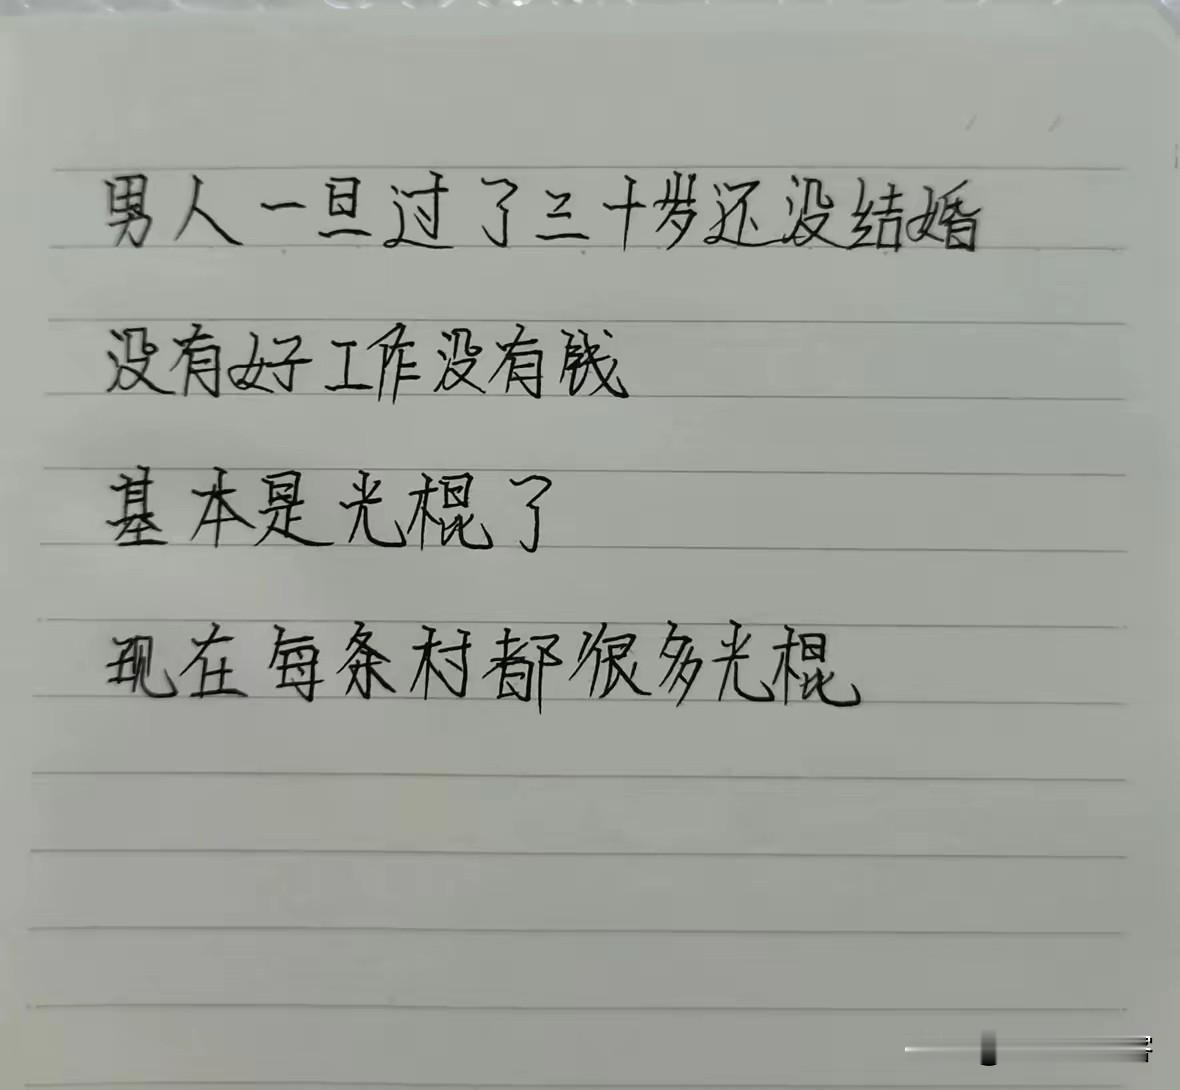 男人一旦过了三十岁还没结婚
没有好工作没有钱
基本是光棍了
现在每条村都很多光棍